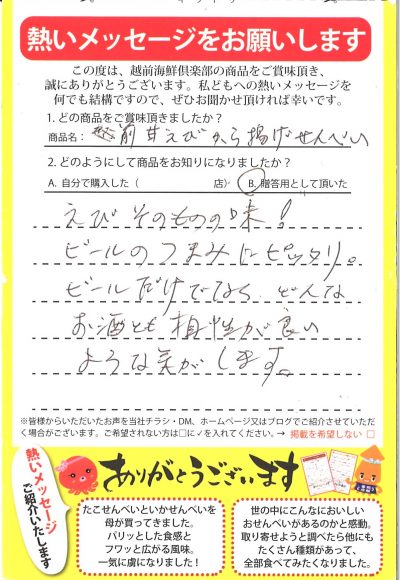 熱いメッセージをお願いします
この度は、越前海鮮倶楽部の商品をご賞味頂き、
誠にありがとうございます。私どもへの熱いメッセージを
何でも結構ですので、ぜひお聞かせ頂ければ幸いです。
1. どの商品をご賞味頂きましたか？
商品名： 越前甘えびから揚げせんべい
2. どのようにして商品をお知りになりましたか？
A. 自分で購入した（ 店） B. 贈答用として頂いた
えびそのものの味！
ビールのつまみにピッタリ。
ビールだけでなく、どんな
お酒とも相性が良い
ような気がします。
※皆様からいただいたお声を当社チラシ・DM、ホームページ又はブログでご紹介させていただ
く場合がございます。ご希望されない方は□に✓を入れてください。→ 掲載を希望しない □
熱いメッセージ
ご紹介いたします
ありがとうございます
たこせんべいといかせんべいを
母が買ってきました。
パリッとした食感と
フワッと広がる風味。
一気に虜になりました！
世の中にこんなにおいしい
おせんべいがあるのかと感動。
取り寄せようと調べたら他にも
たくさん種類があって、
全部食べてみたくなりました。